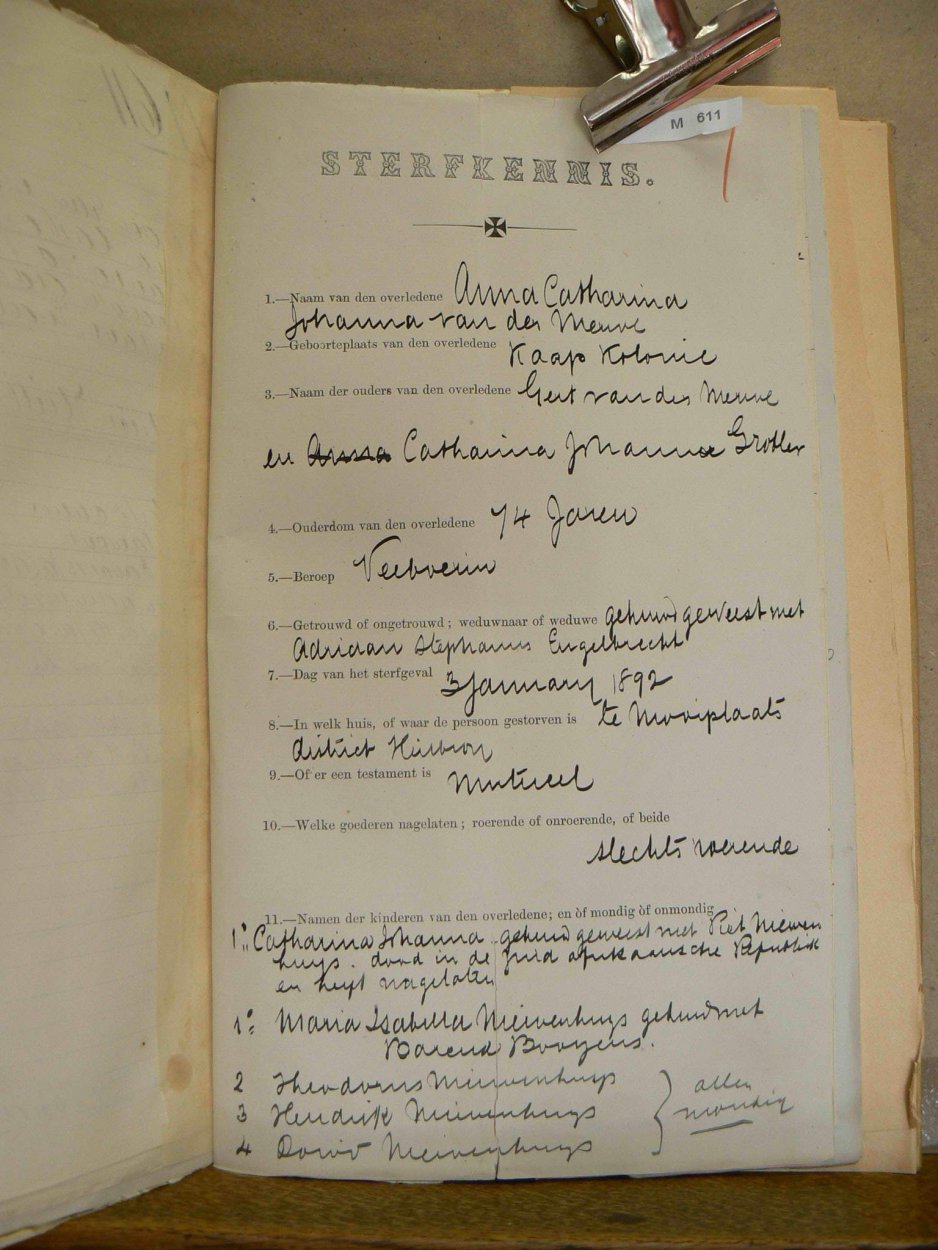 M 611
STERFKENNIS.
1.—Naam van den overledene Anna Catharina
Johanna van der Merwe
2.—Geboorteplaats van den overledene Kaap Kolonie
3.—Naam der ouders van den overledene Gert van der Merwe
en Anna Catharina Johanna Grobler
4.—Ouderdom van den overledene 74 Jaren
5.—Beroep Veeboerin
6.—Getrouwd of ongetrouwd; weduwnaar of weduwe gehuwd geweest met
Adriaan Stephanus Engelbrecht
7.—Dag van het sterfgeval 3 January 1892
8.—In welk huis, of waar de persoon gestorven is te Mooiplaats
district Heilbron
9.—Of er een testament is Mutueel
10.—Welke goederen nagelaten; roerende of onroerende, of beide
slechts roerende
11.—Namen der kinderen van den overledene; en òf mondig òf onmondig
1º. Catharina Johanna gehuwd geweest met Piet Nieuwen
huys. dood in de Zuid afrikaansche Republiek
en heeft nagelaten
1º. Maria Isabella Nieuwenhuys gehuwd met
Barend Booyens.
2 Theodorus Nieuwenhuys
3 Hendrik Nieuwenhuys
4 David Nieuwenhuys
allen
mondig